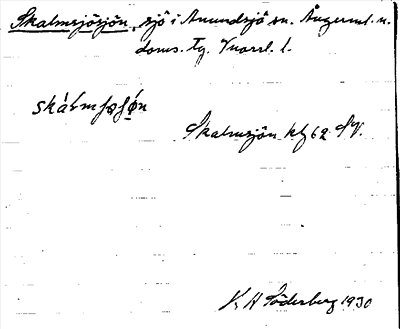 Skalmsjösjön, sjö i Anundsjö sn. Ångerml. n.
doms. tg. Norrl. l.
Skalmsjön kbl 62 SV.
K H Söderberg 1930